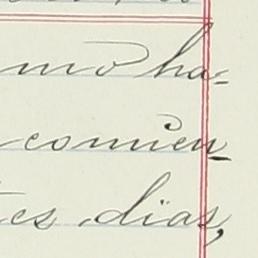 mo ha-
comien-
es dias,